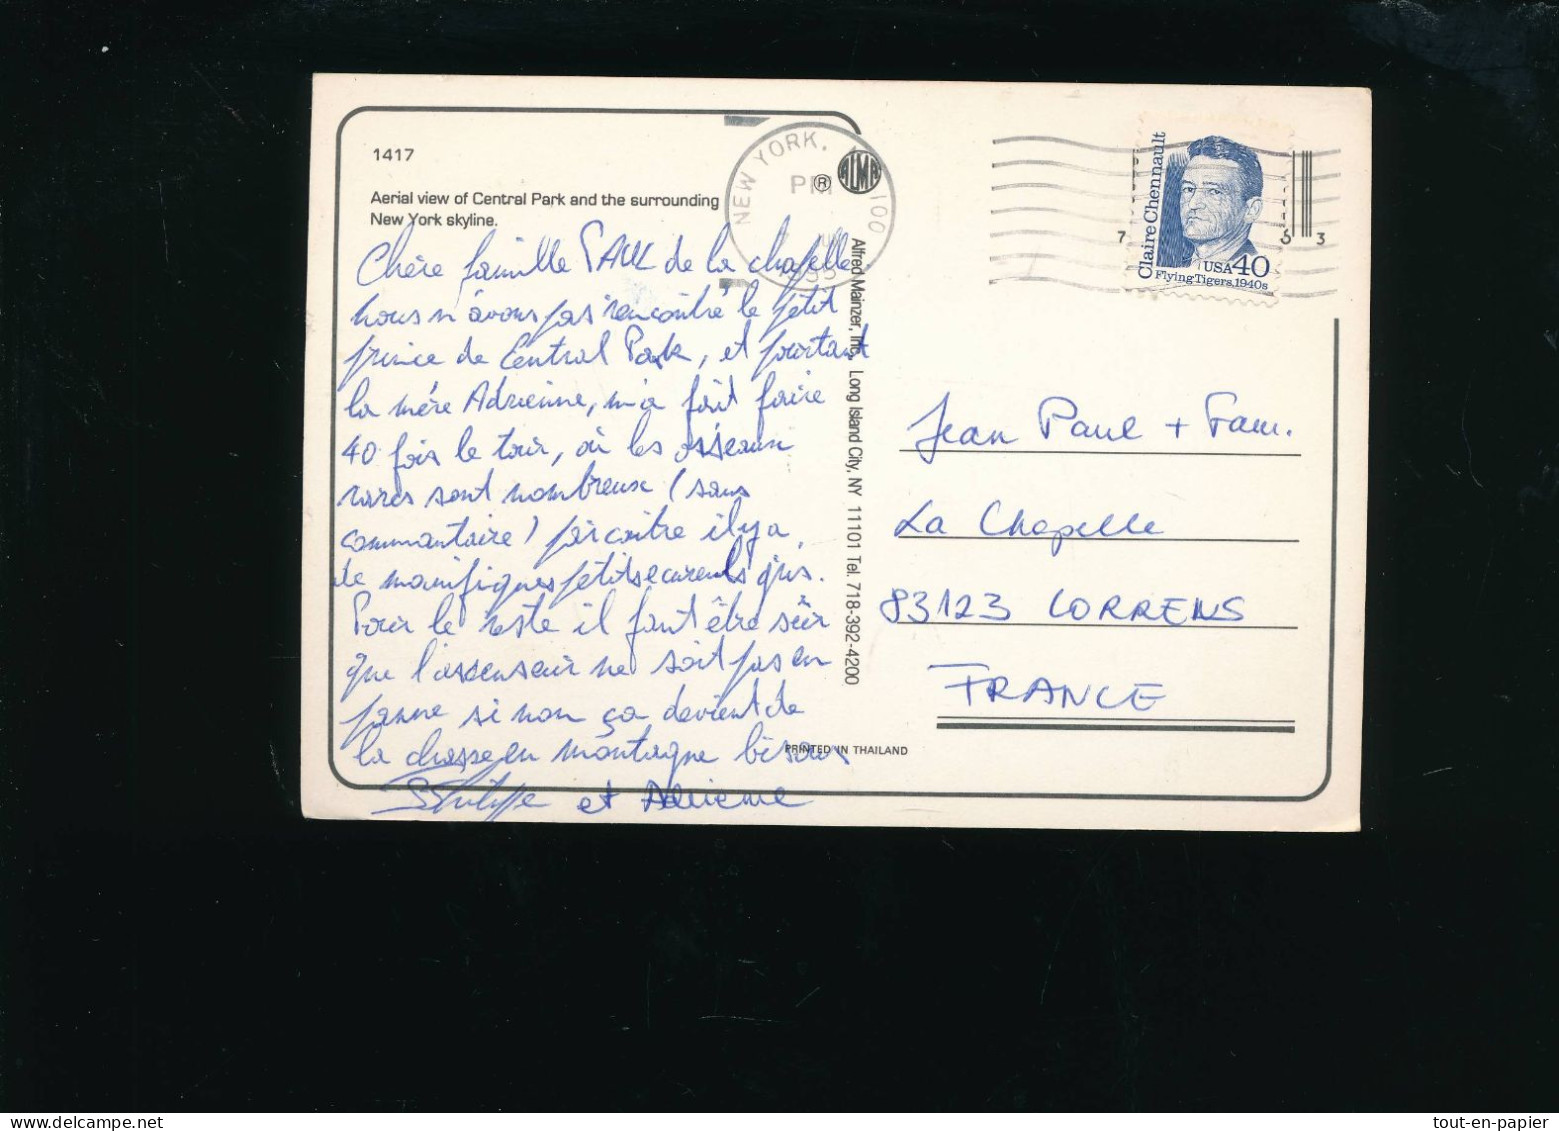 1417
Aerial view of Central Park and the surrounding
New York skyline.
Chère famille PAUL de la chapelle
nous n'avons pas rencontré le petit
prince de Central Park, et pourtant
la mère Adrienne, m'a fait faire
40 fois le tour, où les oiseaux
rares sont nombreux (sans
commentaire) par contre il y a
de magnifiques petits ecureuils gris.
Pour le reste il faut être sûr
que l'ascenseur ne soit pas en
panne si non ça devient de
la chasse en montagne bisous
Philippe et Adrienne
NEW YORK, 100
PM
®
ALMA
Alfred Mainzer, Inc., Long Island City, NY 11101 Tel. 718-392-4200
PRINTED IN THAILAND
Claire Chennault
USA 40
Flying Tigers, 1940s
7 3
Jean Paul + Fam.
La Chapelle
83123 CORRENS
FRANCE
tout-en-papier
delcampe.net